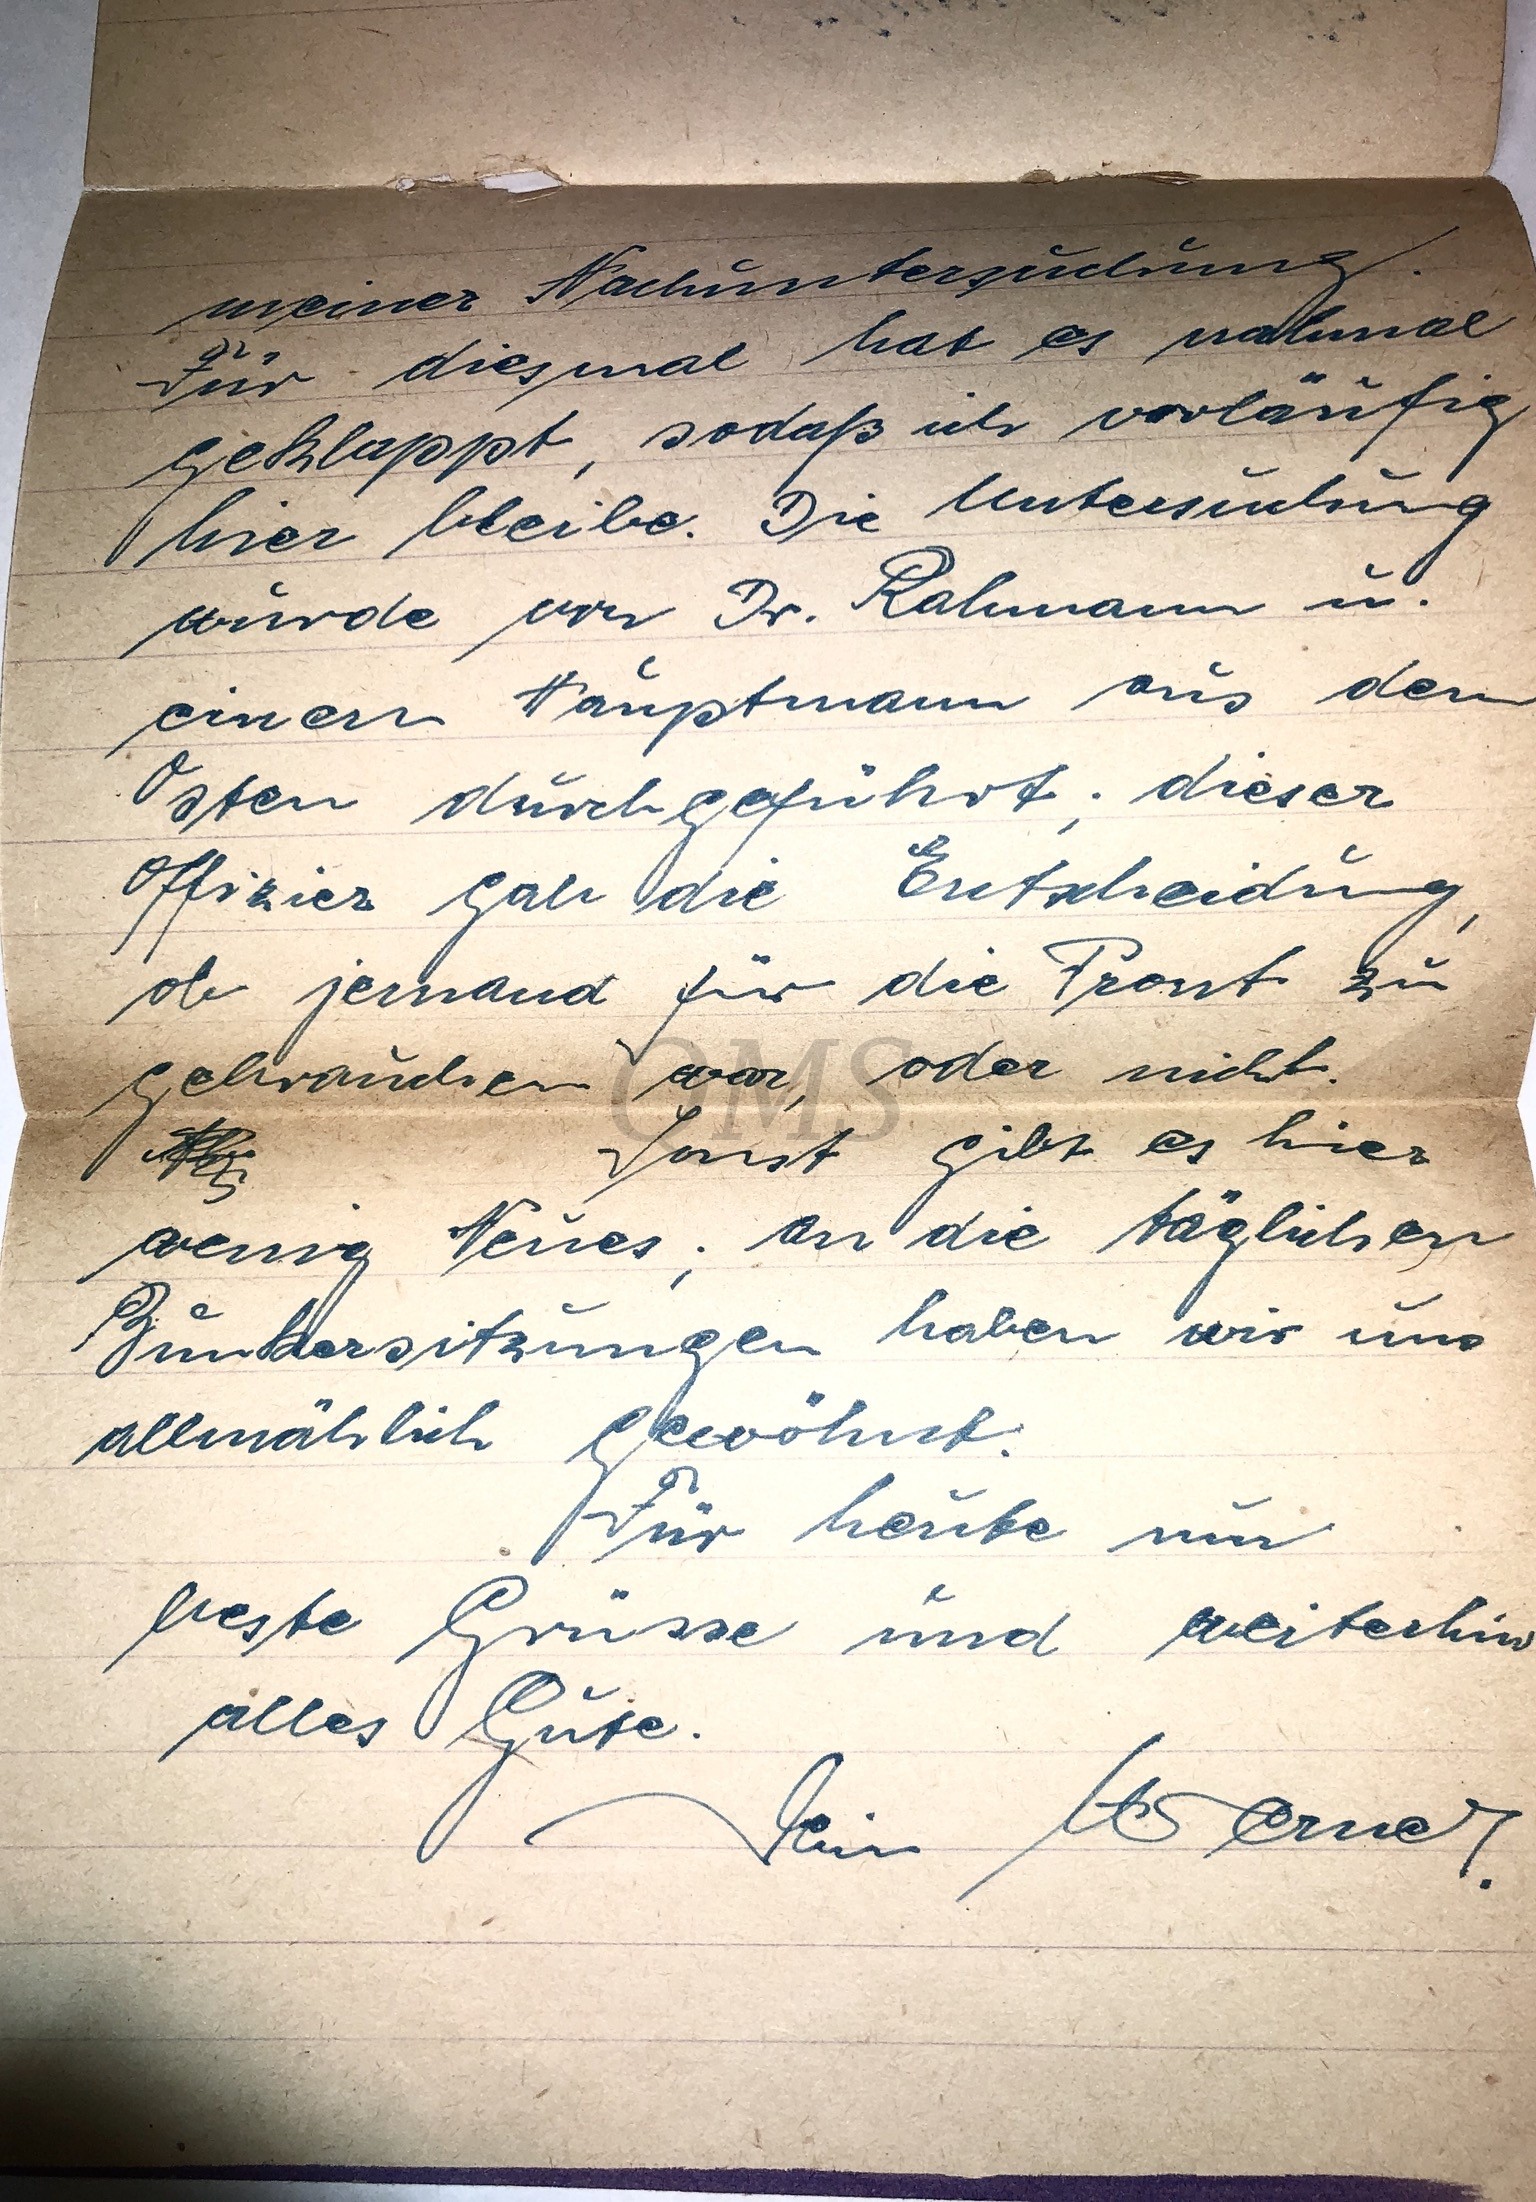 meiner Nachuntersuchung.
Für diesmal hat es nahmal
geklappt, sodaß ich vorläufig
hier bleibe. Die Untersuchung
wurde von Dr. Rahmann u.
einem Hauptmann aus dem
Osten durchgeführt; dieser
Offizier gab die Entscheidung,
ob jemand für die Front zu
gebrauchen war, oder nicht.
OMS
Sonst gibt es hier
wenig Neues; an die täglichen
Bunkersitzungen haben wir uns
allmählich gewöhnt.
Für heute nun
beste Grüsse und weiterhin
alles Gute.
Dein Werner.